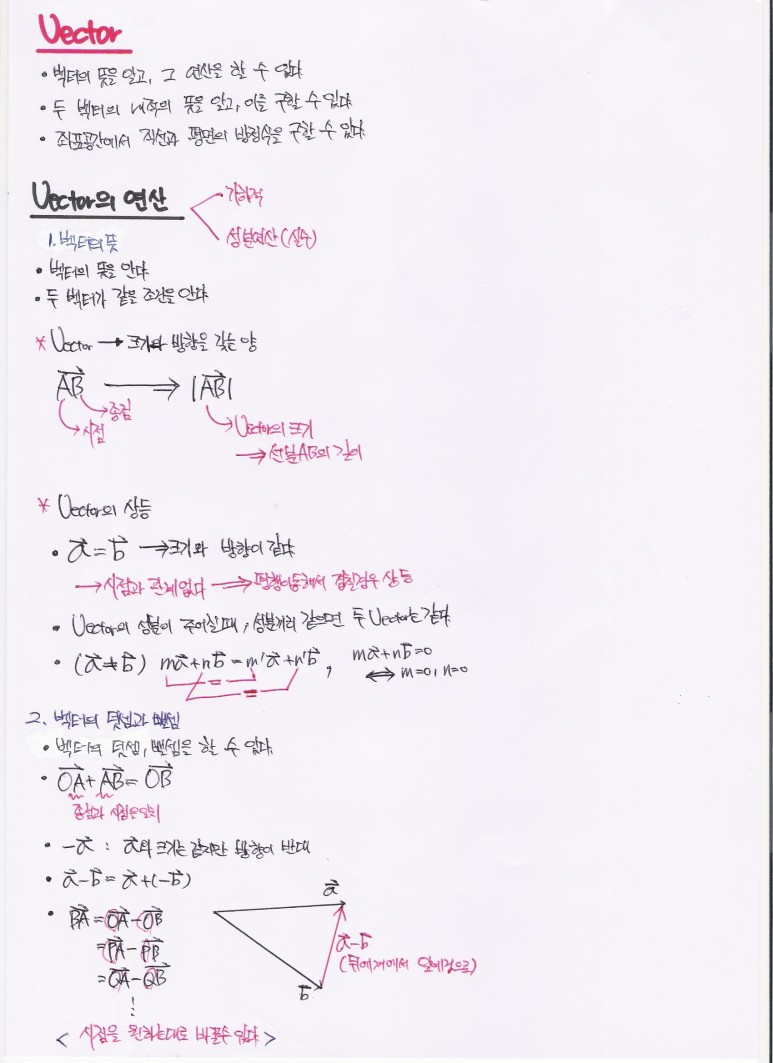 Vector
• 벡터의 뜻을 알고, 그 연산을 할 수 있다
• 두 벡터의 내적의 뜻을 알고, 이를 구할 수 있다
• 좌표공간에서 직선과 평면의 방정식을 구할 수 있다
Vector의 연산
• 기하적
• 성분연산(실수)
1. 벡터의 뜻
• 벡터의 뜻을 안다
• 두 벡터가 같을 조건을 안다
* Vector → 크기와 방향을 갖는 양
A⃗B⃗ ⟹ |A⃗B⃗|
종점
시점
Vector의 크기
⟹ 선분AB의 길이
* Vector의 상등
• a⃗ = b⃗ → 크기와 방향이 같다
→ 시점과 관계없다 ⟹ 평행이동해서 겹칠경우 상등
• Vector의 성분이 주어질때, 성분끼리 같으면 두 Vector는 같다
• (a⃗ ≠ b⃗) ma⃗+nb⃗ = m'a⃗+n'b⃗, ma⃗+nb⃗=0
= ⟺ m=0, n=0
=
2. 벡터의 덧셈과 뺄셈
• 벡터의 덧셈, 뺄셈을 할 수 있다
• O⃗A⃗ + A⃗B⃗ = O⃗B⃗
종점과 시점은 일치
• -a⃗ : a⃗와 크기는 같지만 방향이 반대
• a⃗-b⃗ = a⃗+(-b⃗)
a⃗
• B⃗A⃗ = O⃗A⃗-O⃗B⃗
= P⃗A⃗-P⃗B⃗
a⃗-b⃗
(뒤에거에서 앞에것으로)
= Q⃗A⃗-Q⃗B⃗
b⃗
⋮
< 시점을 원하는대로 바꿀수 있다 >